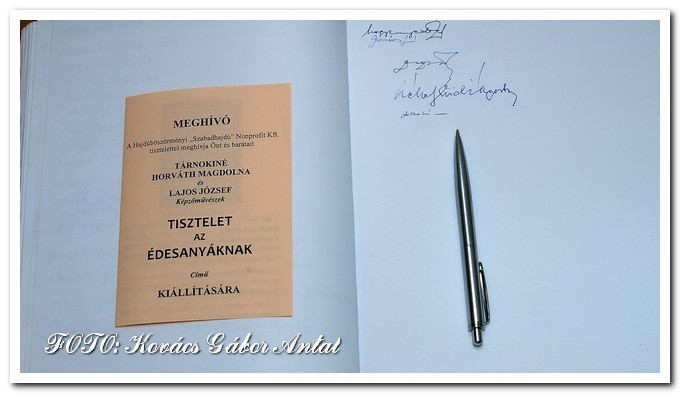 MEGHÍVÓ
A Hajdúböszörményi „Szabadhajdú” Nonprofit Kft.
tisztelettel meghívja Önt és barátait
TÁRNOKINÉ
HORVÁTH MAGDOLNA
és
LAJOS JÓZSEF
Képzőművészek
TISZTELET
AZ
ÉDESANYÁKNAK
Című
KIÁLLÍTÁSÁRA
FOTO: Kovács Gábor Antal